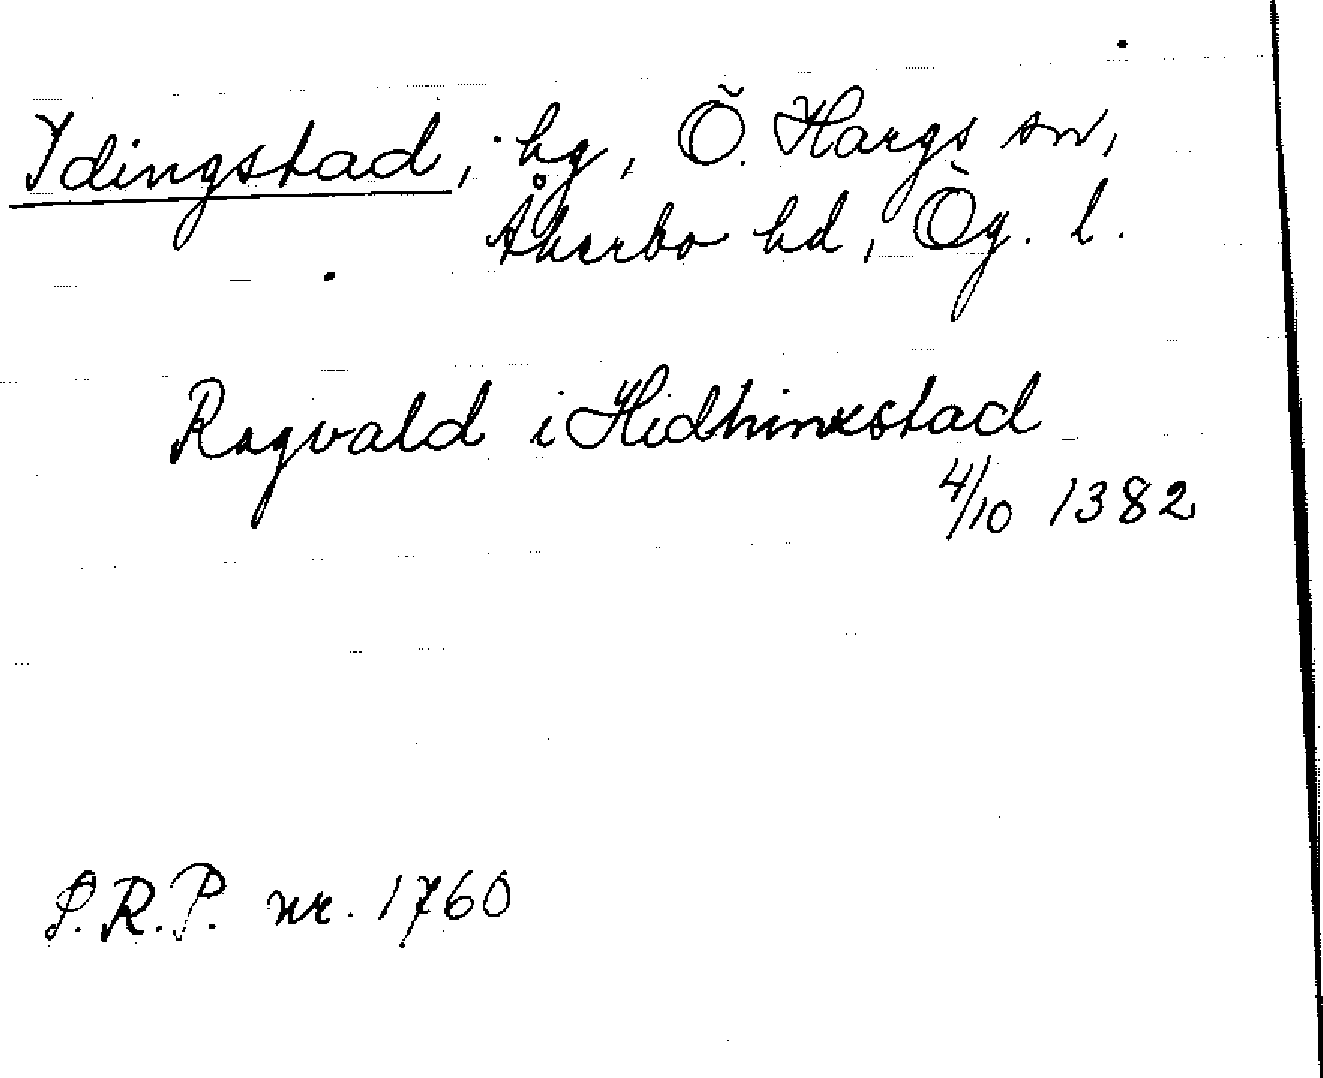 Ydingstad, hg, Ö. Hargs sn,
Åkerbo hd, Ög. l.
Ragvald i Hidhinxstad
4/10 1382
S.R.P. nr. 1760